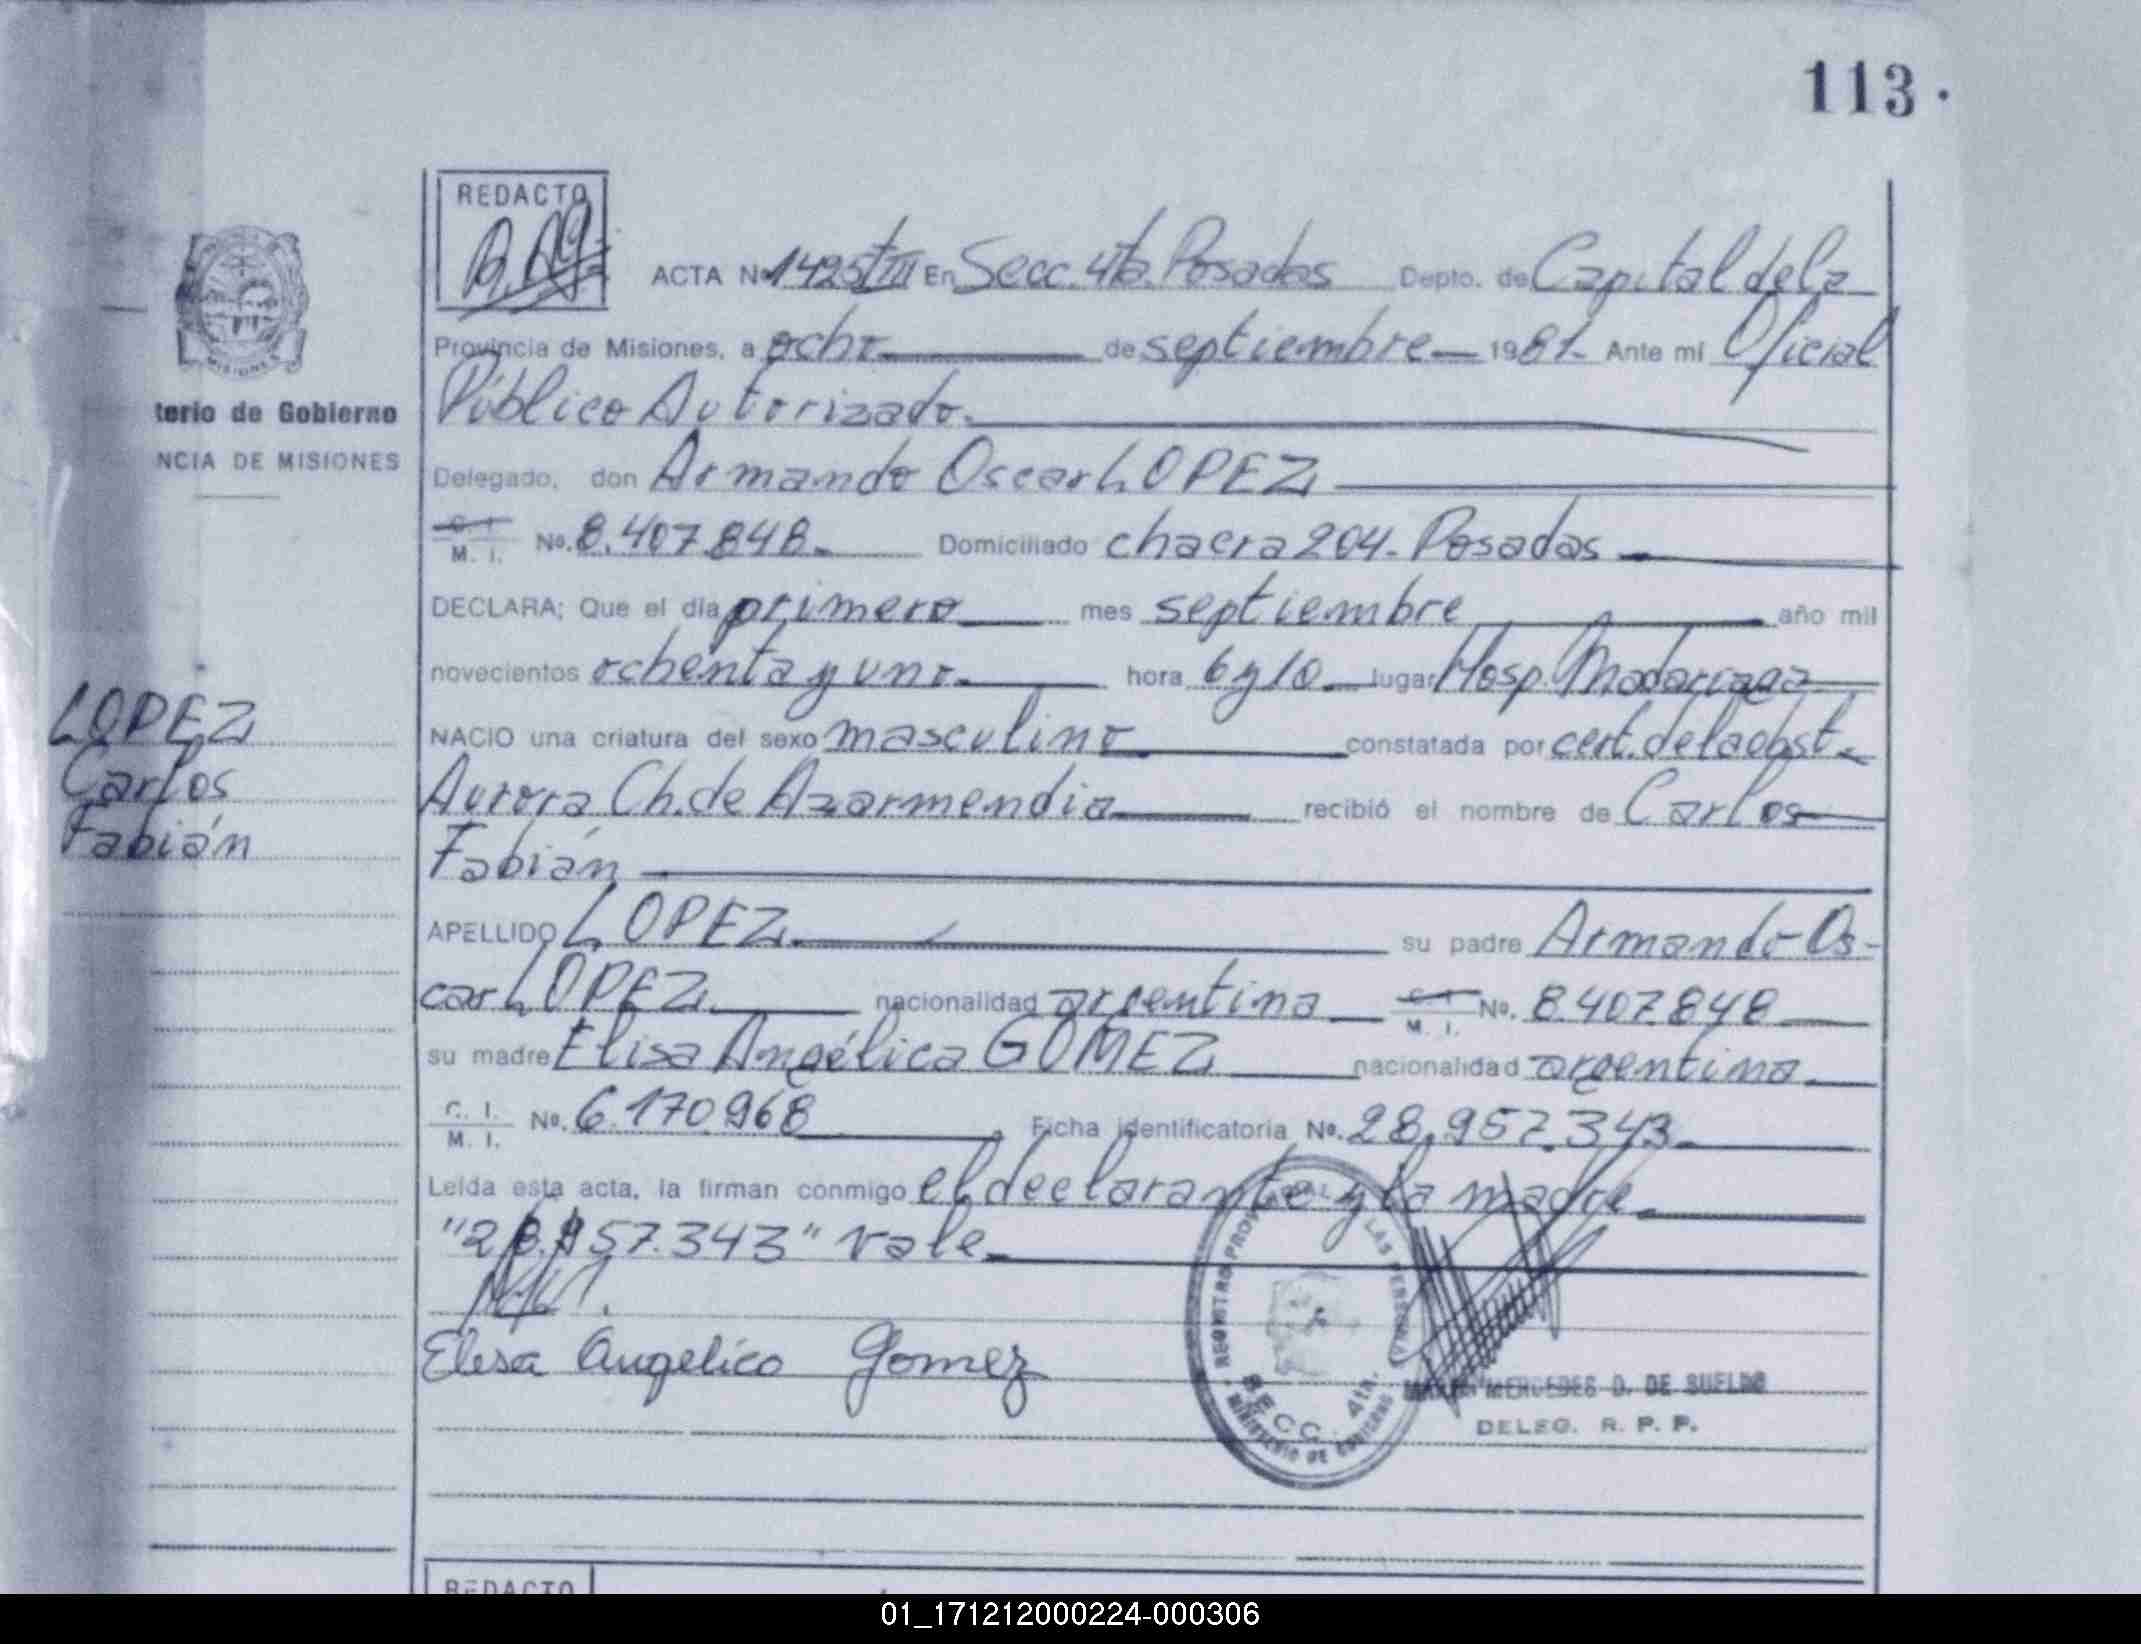 113.
REDACTO
ACTA Nº 1425/III En Secc. 4ta. Posadas Depto. de Capital de la
Provincia de Misiones, a ocho de septiembre 1981. Ante mi Oficial
Público Autorizado.
terio de Gobierno
NCIA DE MISIONES
MISIONES
Delegado, don Armando Oscar LOPEZ
C. I.
M. I. No. 8.407.848. Domiciliado chacra 204. Posadas
DECLARA; Que el día primero mes septiembre año mil
novecientos ochenta y uno. hora 6 y 10 lugar Hosp. Madariaga
LOPEZ
Carlos
Fabián
NACIO una criatura del sexo masculino constatada por cert. de la obst.
Aurora Ch. de Azarmendia recibió el nombre de Carlos
Fabián
APELLIDO LOPEZ. su padre Armando Os-
car LOPEZ. nacionalidad argentina C. I. M. I. No. 8.407.848
su madre Elisa Angélica GOMEZ nacionalidad argentina
C. I.
M. I. No. 6.170.968 Ficha identificatoria No. 28.957.343.
Leída esta acta, la firman conmigo el declarante y la madre.
"28.957.343" vale
Elisa Angelica Gomez
REGISTRO PROVINCIAL LAS PERSONAS
SECC. 4ta.
MINISTERIO DE GOBIERNO
MARIA MERCEDES D. DE SUELDO
DELEG. R. P. P.
REDACTO
01_171212000224-000306